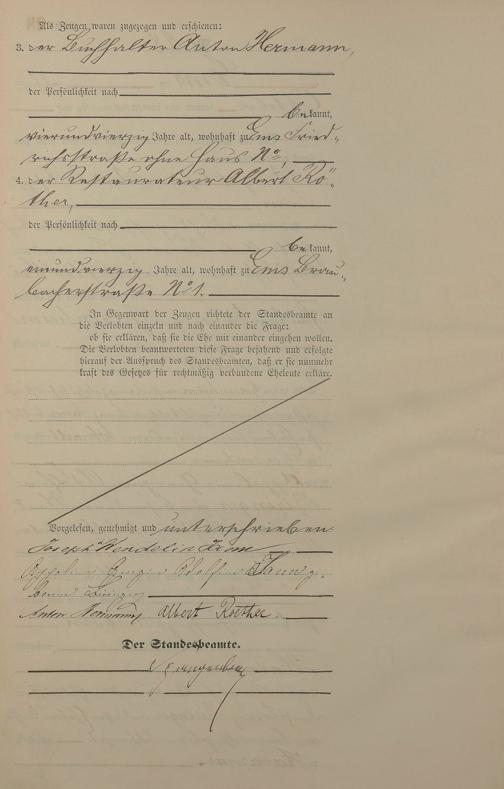 Als Zeugen waren zugezogen und erschienen:
3. der Buchhalter Anton Hermann,
der Persönlichkeit nach
bekannt,
vierundvierzig Jahre alt, wohnhaft zu Ems Fried-
richsstraße ohne Haus No,
4. der Restaurateur Albert Rö-
ther,
der Persönlichkeit nach
bekannt,
einundvierzig Jahre alt, wohnhaft zu Ems Brau-
bacherstraße No 1.
In Gegenwart der Zeugen richtete der Standesbeamte an
die Verlobten einzeln und nach einander die Frage:
ob sie erklären, daß sie die Ehe mit einander eingehen wollen.
Die Verlobten beantworteten diese Frage bejahend und erfolgte
hierauf der Ausspruch des Standesbeamten, daß er sie nunmehr
kraft des Gesetzes für rechtmäßig verbundene Eheleute erkläre.
Vorgelesen, genehmigt und unterschrieben
Joseph Wendelin
Anton Hermann Albert Roether
Der Standesbeamte.